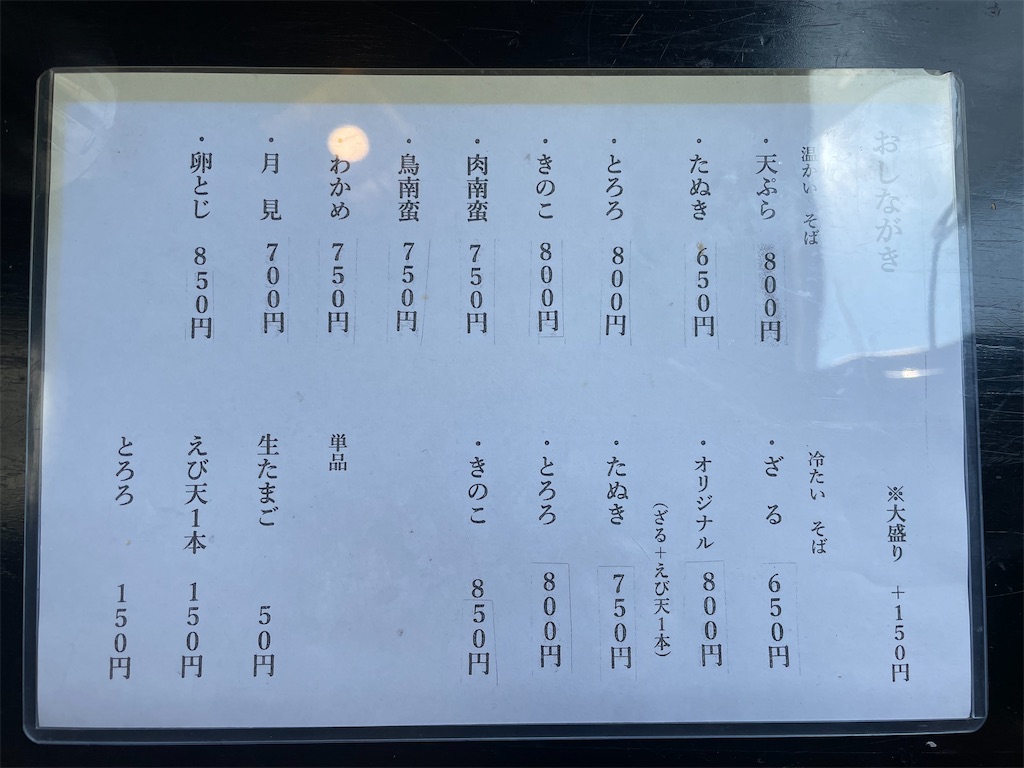 おしながき
※大盛り +150円
温かい そば
・天ぷら 800円
・たぬき 650円
・とろろ 800円
・きのこ 800円
・肉南蛮 750円
・鳥南蛮 750円
・わかめ 750円
・月見 700円
・卵とじ 850円
冷たい そば
・ざる 650円
・オリジナル 800円
(ざる+えび天1本)
・たぬき 750円
・とろろ 800円
・きのこ 850円
単品
生たまご 50円
えび天1本 150円
とろろ 150円